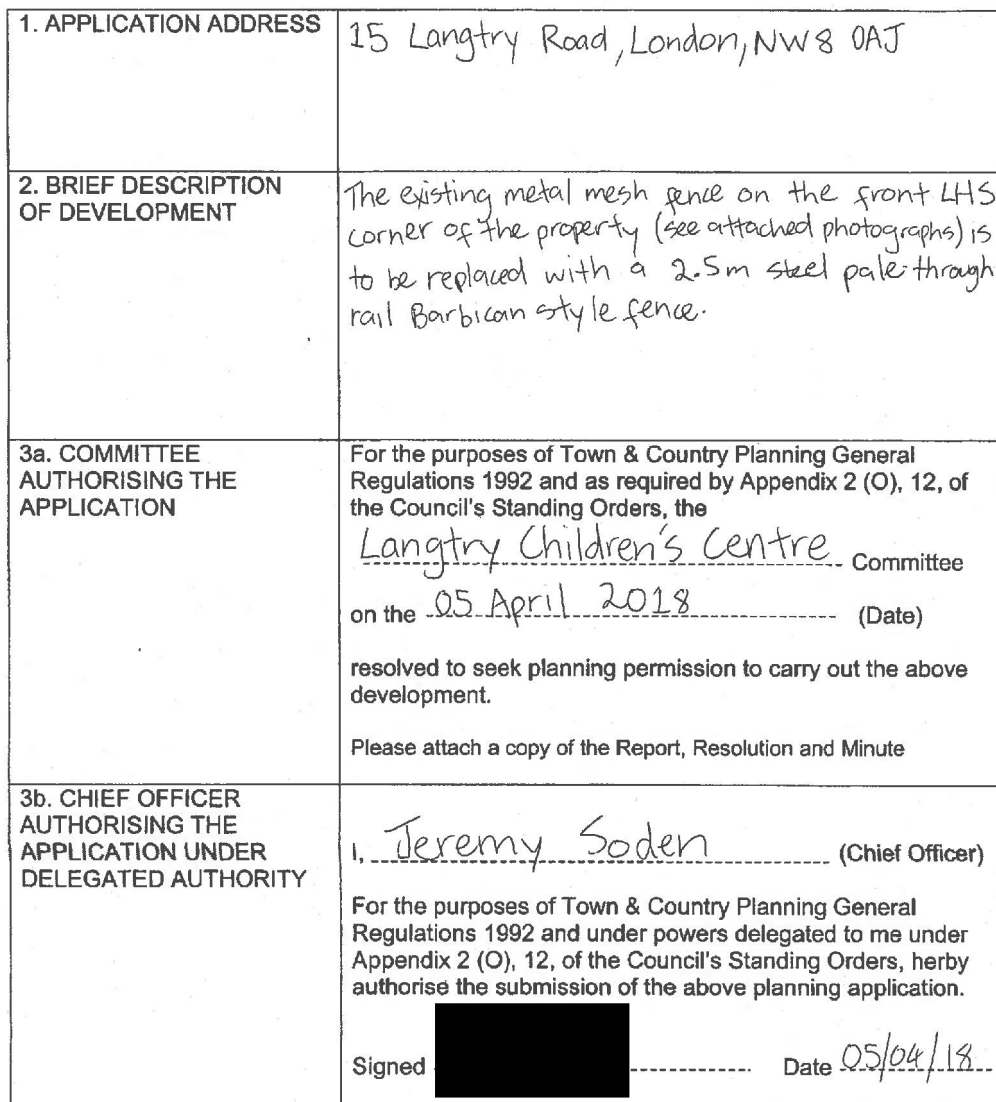 1. APPLICATION ADDRESS
15 Langtry Road, London, NW8 0AJ
2. BRIEF DESCRIPTION
OF DEVELOPMENT
The existing metal mesh fence on the front LHS
corner of the property (see attached photographs) is
to be replaced with a 2.5m steel pale through
rail Barbican style fence.
3a. COMMITTEE
AUTHORISING THE
APPLICATION
For the purposes of Town & Country Planning General
Regulations 1992 and as required by Appendix 2 (O), 12, of
the Council's Standing Orders, the
Langtry Children's Centre Committee
on the 05 April 2018 (Date)
resolved to seek planning permission to carry out the above
development.
Please attach a copy of the Report, Resolution and Minute
3b. CHIEF OFFICER
AUTHORISING THE
APPLICATION UNDER
DELEGATED AUTHORITY
I, Jeremy Soden (Chief Officer)
For the purposes of Town & Country Planning General
Regulations 1992 and under powers delegated to me under
Appendix 2 (O), 12, of the Council's Standing Orders, herby
authorise the submission of the above planning application.
Signed Date 05/04/18